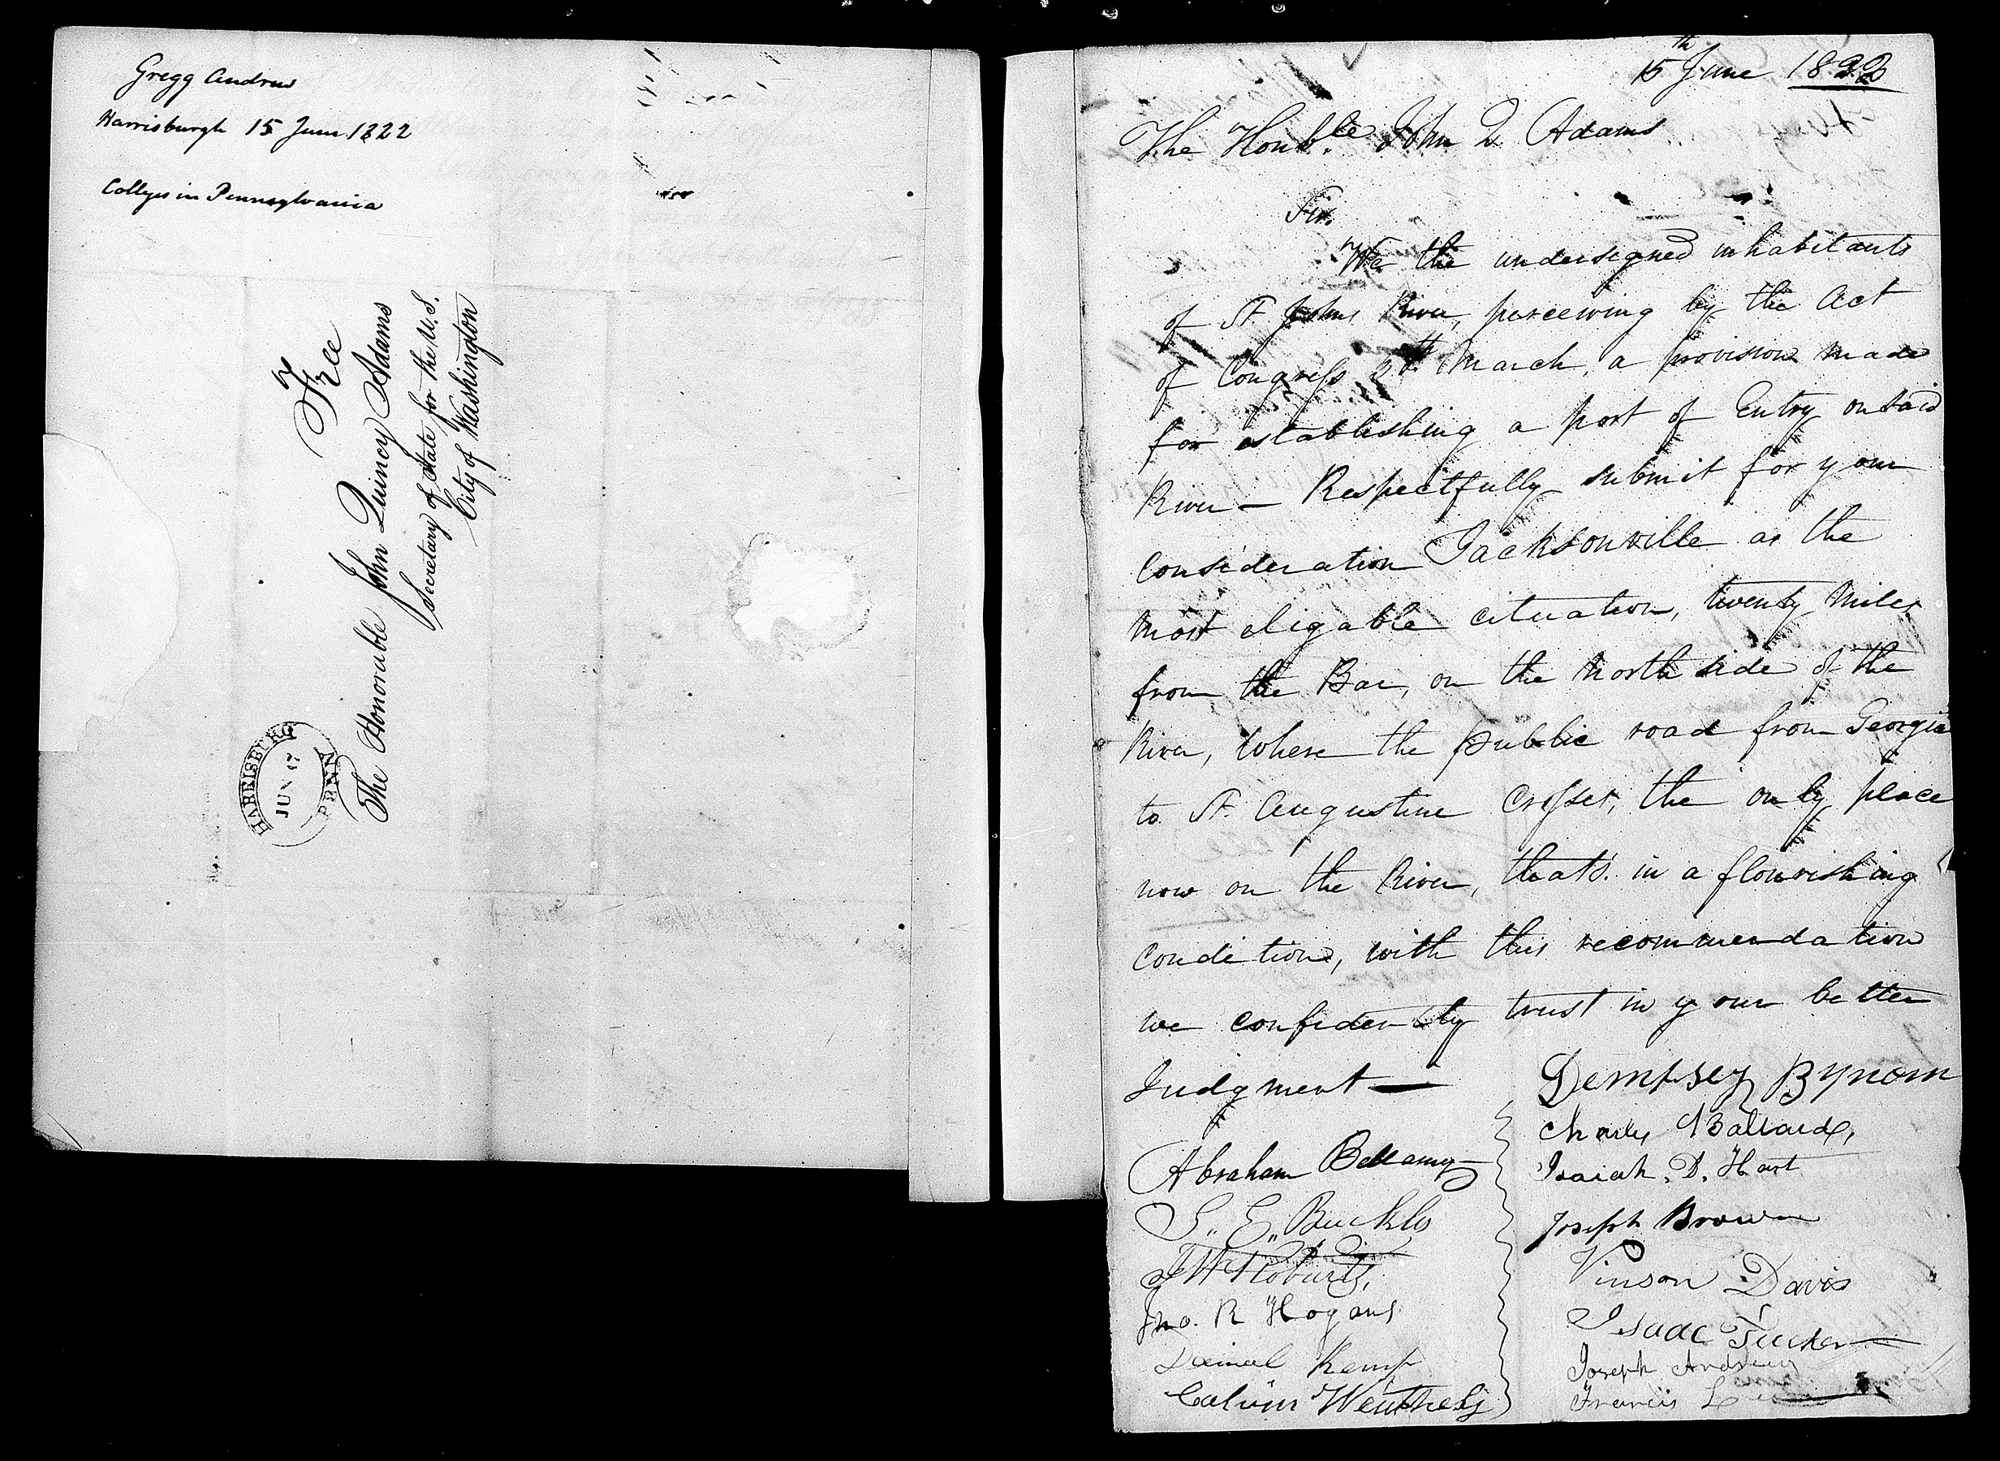 Gregg Andrew
Harrisburgh 15 June 1822
Colleges in Pennsylvania
Free
The Honorable John Quincy Adams
Secretary of State for the U.S.
City of Washington
HARRISBURG
JUN 17
PENN
15th June 1822
The Honble. John Q Adams
Sir,
We the undersigned inhabitants
of St Johns River, perceiving by the Act
of Congress March, a provision made
for establishing a port of Entry on said
River — Respectfully submit for your
consideration Jacksonville as the
most eligable cituation, twenty Miles
from the Bar, on the North side of the
River, where the public road from Georgia
to St. Augustine Crosses, the only place
now on the River, thats in a flourishing
Condition, with this recommendation
we confidently trust in your better
Judgment —
Dempsey Bynom
Charles Ballard,
Isaiah. D. Hart
Joseph Brown
Vinson Davis
Isaac Tucker
Joseph Andrews
Francis
Abraham Bellamy
S. E. Buckles
J W Roberts,
Jno. R Hogans
Daniel Kemp
Calvin